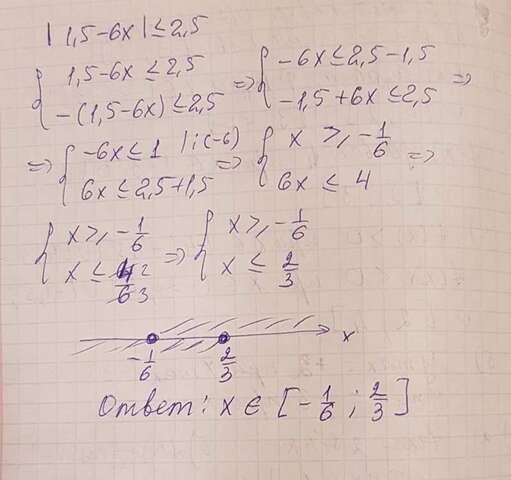 |1,5-6x|≤2,5
{ 1,5-6x≤2,5
-(1,5-6x)≤2,5 => { -6x≤2,5-1,5
-1,5+6x≤2,5 =>
=> { -6x≤1 |:(-6)
6x≤2,5+1,5 => { x≥-1/6
6x≤4 =>
{ x≥-1/6
x≤4/6 2/3 => { x≥-1/6
x≤2/3
x
-1/6 2/3
Ответ: x∈[-1/6; 2/3]